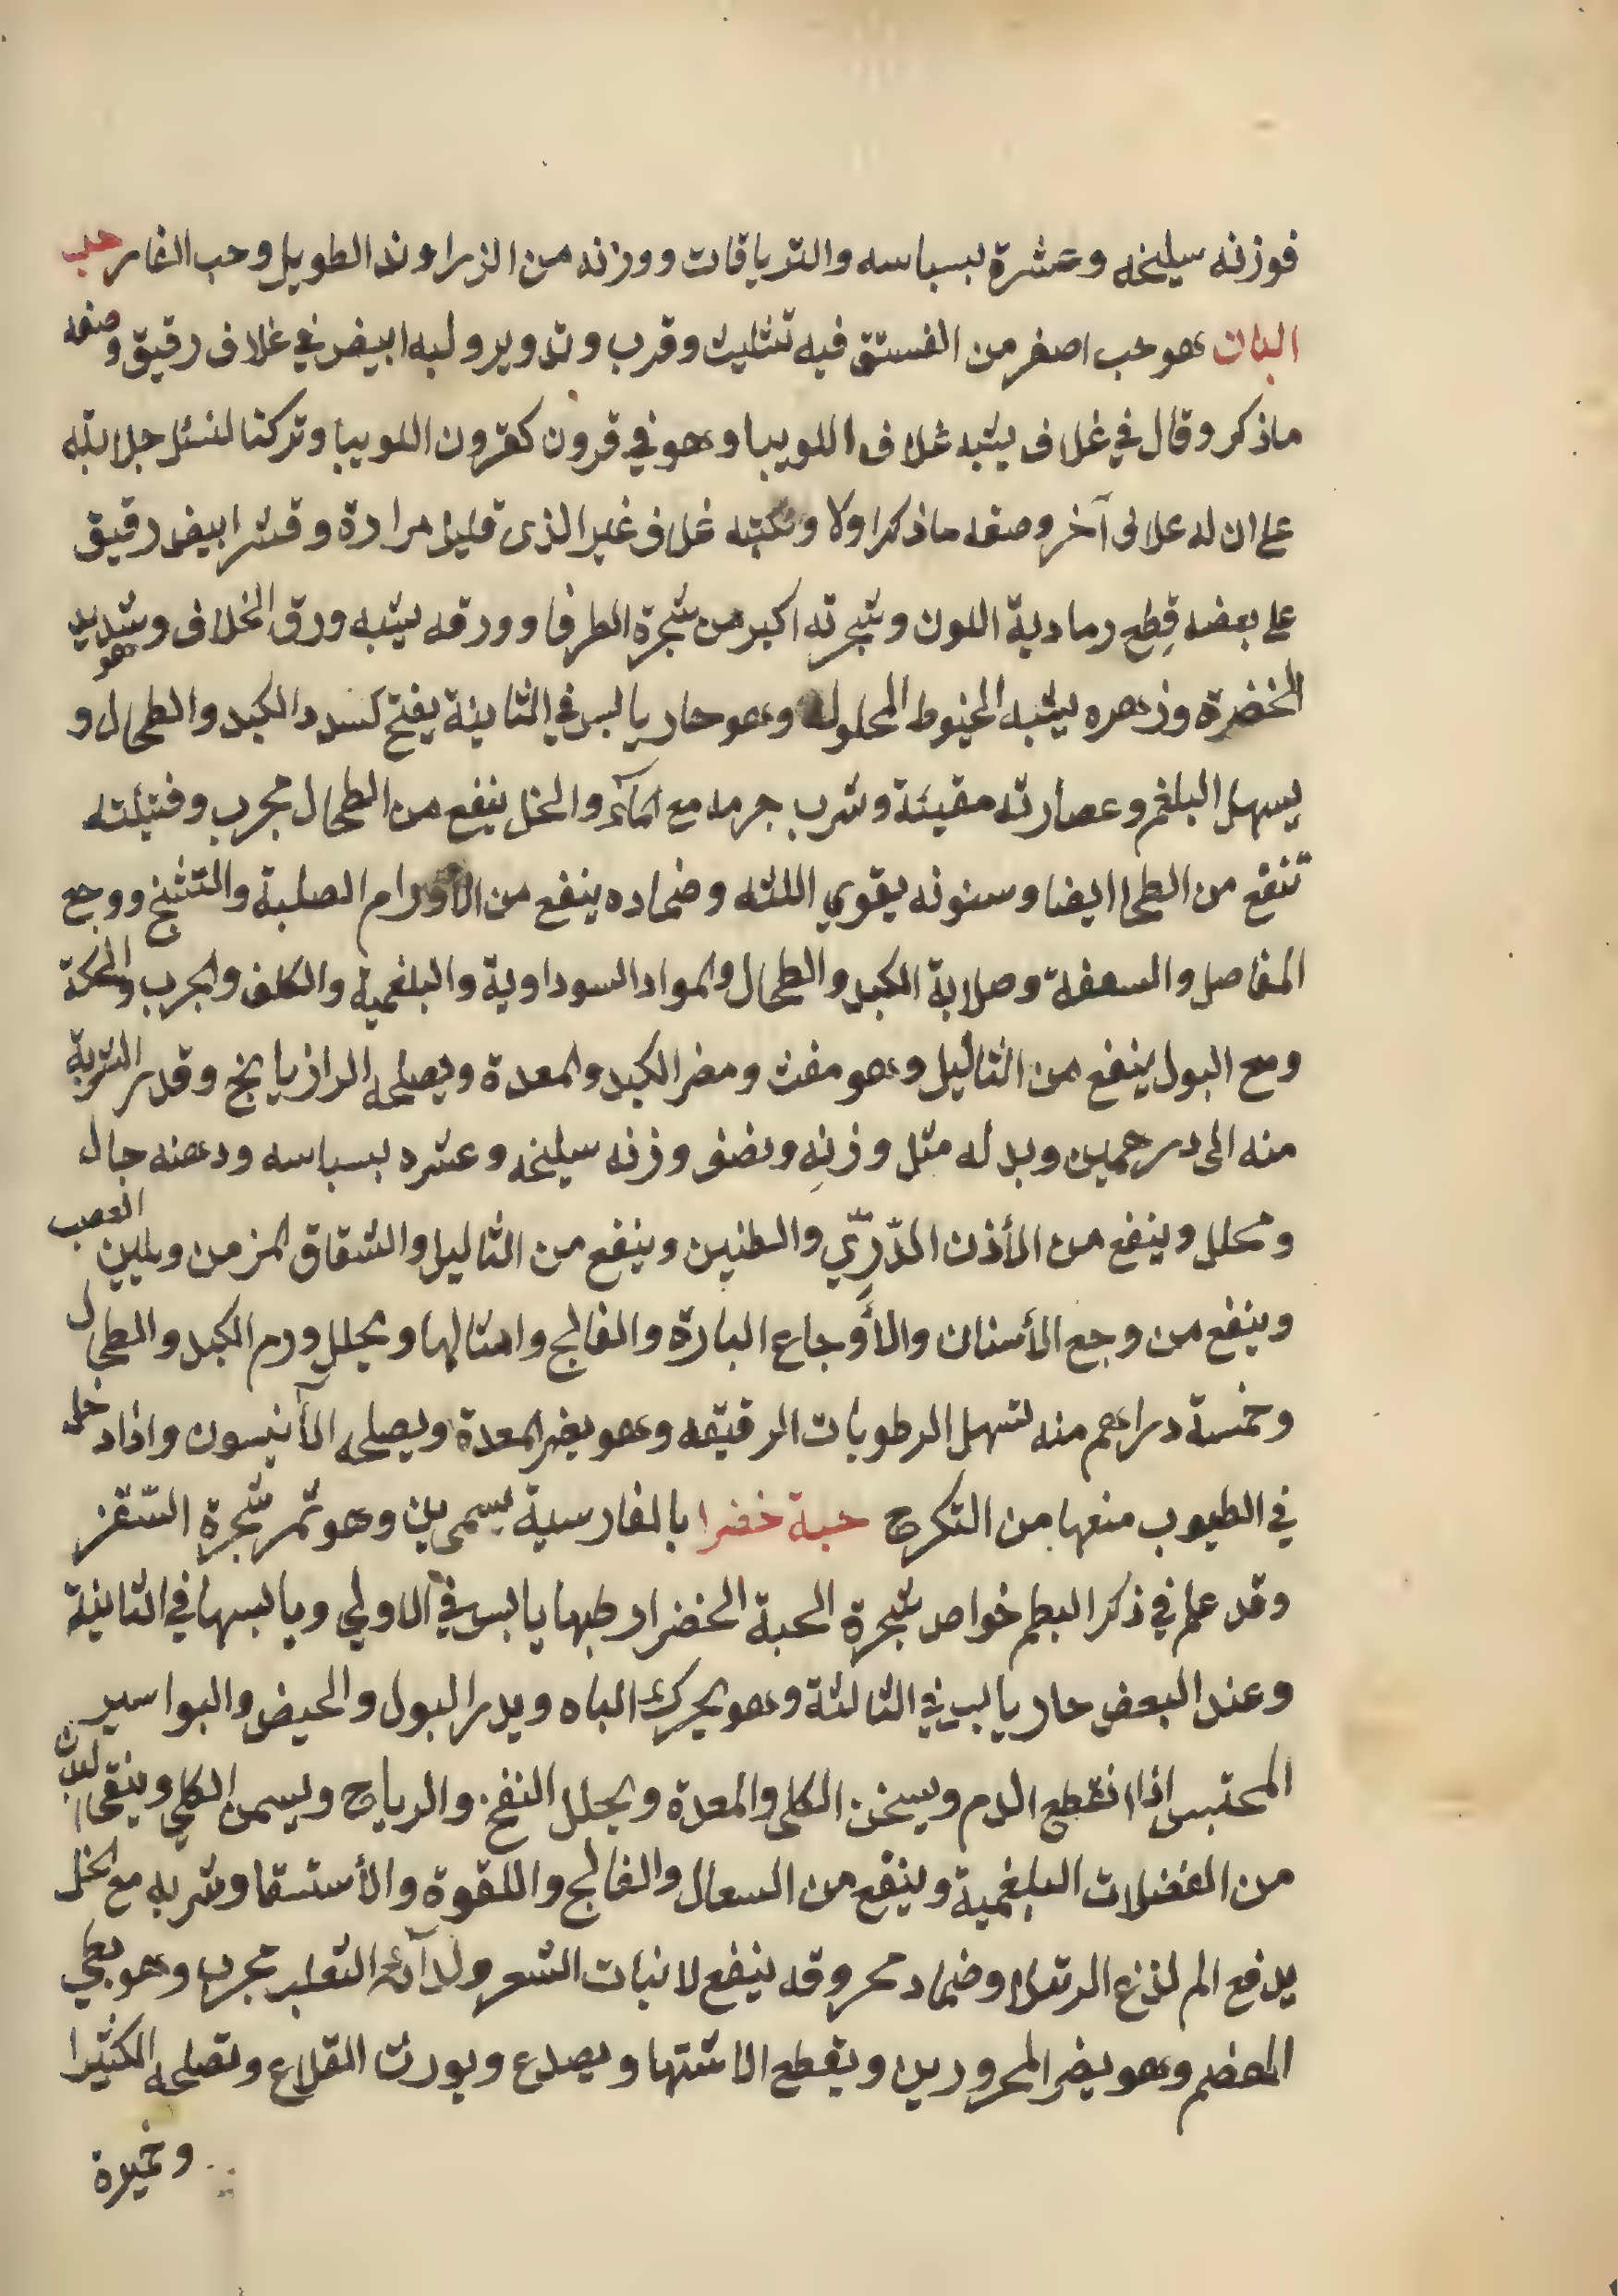 فوزنه سليخه وعشرة بسباسه والترياقات ووزنه من الزراوند الطويل وحب الغار حب
البان هو حب اصغر من الفستق فيه تثليث وقرب وتدوير ولبه ابيض في غلاف رقيق وصفه
ماذكر وقال في غلاف يشبه غلاف اللوبيا وهو في قرون كقرون اللوبيا وتركنا لنسئل جلابته
على ان له آخر وصفه ماذكر اولا غلاف غير الذي قليل مرارة وقشر ابيض رقيق
على بعضه قِطع رمادية اللون وشجرته اكبر من شجرة الطرفا وورقه يشبه ورق الخلاف وشديد
الخضرة وزهره يشبه الخيوط المحلوله وهو حار يابس في الثانية يفتح لسدد الكبد والطحال وهو
يسهل البلغم وعصارته مقيئة وشرب جرمه مع المآء والخل ينفع من الطحال مجرب وفتيلته
تنفع من الطحا ايضا وسنونه يقوي اللثه وضماده ينفع من الأورام الصلبة والتشنج ووجع
المفاصل والسعفة وصلابة الكبد والطحال والمواد السوداوية والبلغمية والكلف والجرب والحكة
ومع البول ينفع من الثاليل وهو مغث ومضر الكبد والمعدة ويصلحه الرازيانج وقدر الشربة
منه الى درهمين وبدله مثل وزنِه ونصف وزنه سليخه وعشره بسباسه ودهنه جال
ومحلل وينفع من الأذن الدّرِّي والطنين وينفع من الثاليل والشقاق المزمن ويلين العصب
وينفع من وجع الأسنان والأوجاع البارة والفالج وامثالها ويحلل ورم الكبد والطحال
وخمسة دراهم منه تسهل الرطوبات الرقيقه وهو يضر المعدة ويصلحه الآنيسون واذا دخل
في الطيوب منعها من التكرج حبة خضرا بالفارسية يسمى بن وهو ثمر شجرة السّقز
وقد علم في ذكر البطم خواص شجرة الحبة الخضرا رطبها يابس في الاولى ويابسها في الثانية
وعند البعض حار يابس في الثالثة وهو يحرك الباه ويدر البول والحيض والبواسير
المحتبس اذا انقطع الدم ويسخن الكلى والمعدة ويحلل النفخ والرياح ويسمن الكلى وينقى البدن
من الفضلات البلغمية وينفع من السعال والفالج واللقوة والأستسقا وشربه مع الخل
يدفع الم لذع الرتيلا وضماد محروقه ينفع لانبات الشعر ولدآء الثعلب مجرب وهو بطي
الهضم وهو يضر المحرورين ويقطع الاشتها ويصدع ويورث القلاع وتصلحه الكثيرا
وخميرة